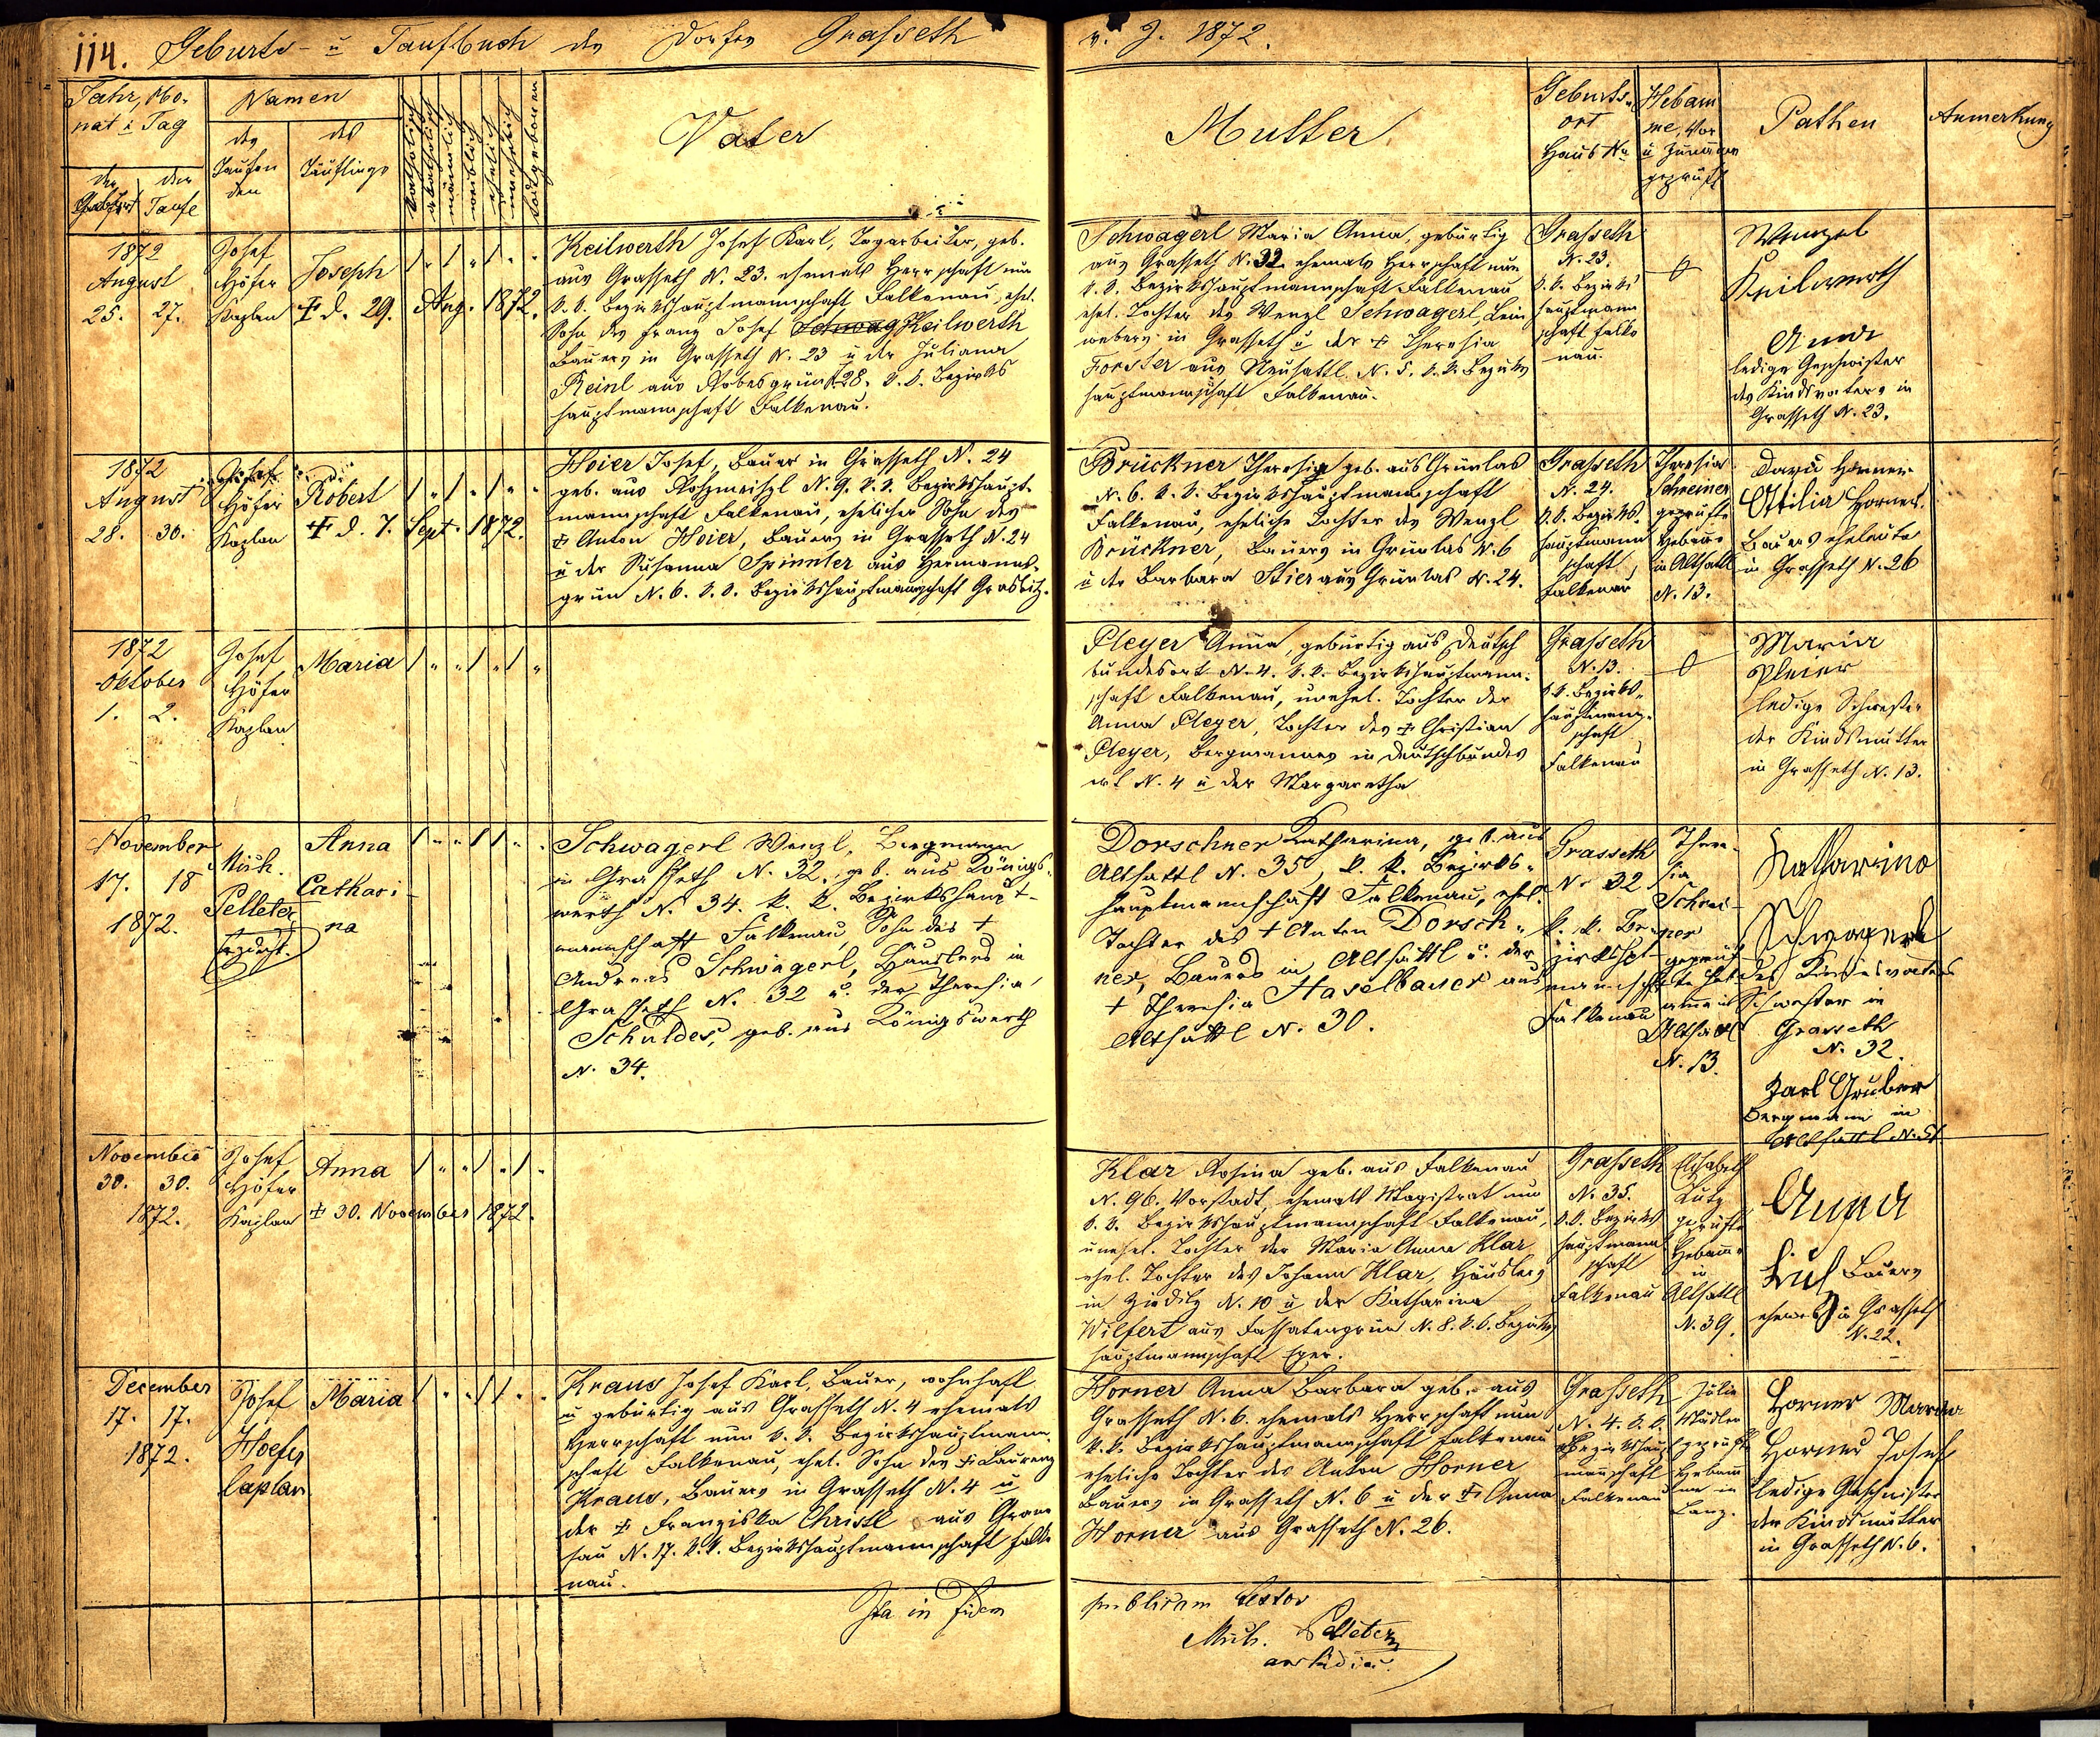 114. Geburts- u Taufbuch des Dorfes Grasseth v. J. 1872.
Jahr, Mo-
nat u Tag
der Geburt
der Taufe
Namen
des Taufen
den
des
Täuflings
katholisch
akatholisch
männlich
weiblich
ehelich
unehelich
todtgeboren
Vater
Mutter
Geburts-
ort
Haus No
Hebam
me, Vor
u Zunamen
geprüft
Pathen
Anmerkung
1872
August
25. 27.
Josef
Höfer
Kaplan
Joseph
✝ d. 29. Aug. 1872.
Keilwerth Josef Karl, Tagarbeiter, geb.
aus Grasseth N. 23. ehemals Herrschaft nun
k. k. Bezirkshauptmannschaft Falkenau, ehel.
Sohn des Franz Josef Schwag Keilwerth
Bauers in Grasseth N. 23 u der Juliana
Reinl aus Robesgrün N. 28. k. k. Bezirks
hauptmannschaft Falkenau.
Schwagerl Maria Anna, gebürtig
aus Grasseth N. 32 ehemals Herrschaft nun
k. k. Bezirkshauptmannschaft Falkenau
ehel. Tochter des Wenzl Schwagerl, Lein
webers in Grasseth u der ✝ Theresia
Forster aus Neusattl N. 5. k. k. Bezirks
hauptmannschaft Falkenau.
Grasseth
N. 23.
k. k. Bezirks
hauptmann
schaft Falke
nau.
Wenzel
Keilwerth
Anna
ledige Geschwister
des Kindsvaters in
Grasseth N. 23.
1872
August
28. 30.
Josef
Höfer
Kaplan
Robert
✝ d. 7. Sept. 1872.
Hoier Josef, Bauer in Grasseth N. 24
geb. aus Roßmeissl N. 9. k. k. Bezirkshaupt-
mannschaft Falkenau, ehelicher Sohn des
✝ Anton Hoier, Bauers in Grasseth N. 24
u der Susanna Spinnler aus Hermanns-
grün N. 6. k. k. Bezirkshauptmannschaft Graslitz.
Brückner Theresia geb. aus Grünlas
N. 6. k. k. Bezirkshauptmannschaft
Falkenau, eheliche Tochter des Wenzl
Brückner, Bauers in Grünlas N. 6
u der Barbara Stier aus Grünlas N. 24.
Grasseth
N. 24.
k. k. Bezirks
hauptmann
schaft
Falkenau
Theresia
Schreiner
geprüfte
Hebame
in Altsattl
N. 13.
Horner
Ottilia Horner
Bauers eheleute
in Grasseth N. 26
1872
Oktober
1. 2.
Josef
Höfer
Kaplan
Maria
Pleyer Anna, gebürtig aus Deutsch
bundesort N. 4. k. k. Bezirkshauptmann-
schaft Falkenau, unehel. Tochter der
Anna Pleyer, Tochter des ✝ Christian
Pleyer, Bergmannes in Deutschbundes
ort N. 4 u der Margaretha
Grasseth
N. 13.
k. k. Bezirks-
hauptmann-
schaft
Falkenau
Maria
Pleier
ledige Schwester
der Kindsmutter
in Grasseth N. 13.
November
17. 18
1872.
Mich.
Pelleter
Erzdecht.
Anna
Cathari-
na
Schwagerl Wenzl, Bergmann
in Grasseth N. 32, geb. aus Königs-
werth N. 34. k. k. Bezirkshaupt-
mannschaft Falkenau, Sohn des ✝
Andreas Schwägerl, Häuslers in
Grasseth N. 32 u. der Theresia
Schuldes, geb. aus Königswerth
N. 34.
Dorschner Katharina, geb. aus
Altsattl N. 35, k. k. Bezirks-
hauptmannschaft Falkenau, ehel.
Tochter des ✝ Anton Dorsch-
ner, Bauers in Altsattl u. der
✝ Theresia Haselbauer aus
Altsattl N. 30.
Grasseth
No 32
k. k. Be-
zirkshpt-
mannschft
Falkenau
There-
sia
Schrei-
ner
geprüf-
te Heb-
amme in
Altsattl
N. 13.
Katharina
Schwagerl
des Kindesvaters
Schwester in
Grasseth
N. 32.
Karl Gruber
Bergmann in
Altsattl N. 51
November
30. 30.
1872.
Josef
Höfer
Kaplan
Anna
✝ 30. November 1872.
Klar Rosina geb. aus Falkenau
N. 96. Vorstadt, ehemals Magistrat nun
k. k. Bezirkshauptmannschaft Falkenau,
unehel. Tochter der Maria Anna Klar,
ehel. Tochter des Johann Klar, Häuslers
in Zieditz N. 10 u der Katharina
Wilfert aus Fassatengrün N. 8. k. k. Bezirks
hauptmannschaft Eger.
Grasseth
N. 35.
k. k. Bezirks
hauptmann
schaft
Falkenau
Elisabeth
Lutz
geprüfte
Hebamme
in
Altsattl
N. 39.
Anna
Bauers
in Grasseth
N. 22.
December
17. 17.
1872.
Josef
Hoefer
Caplan
Maria
Kraus Josef Karl, Bauer, wohnhaft
u gebürtig aus Grasseth N. 4 ehemals
Herrschaft nun k. k. Bezirkshauptmann
schaft Falkenau, ehel. Sohn des ✝ Laurenz
Kraus, Bauers in Grasseth N. 4 u
der ✝ Franziska Christl aus Grane
sau N. 17. k. k. Bezirkshauptmannschaft Falke
nau.
Horner Anna Barbara geb. aus
Grasseth N. 6. ehemals Herrschaft nun
k. k. Bezirkshauptmannschaft Falkenau
eheliche Tochter des Anton Horner
Bauers in Grasseth N. 6 u der ✝ Anna
Horner aus Grasseth N. 26.
Grasseth
N. 4. k. k.
Bezirkshaupt
mannschaft
Falkenau
Julie
Mädler
geprüfte
Hebam
me in
Lanz.
Horner Maria
Horner Josef
ledige Geschwister
der Kindsmutter
in Grasseth N. 6.
Ita in fidem
publicam testor
Mich. Pelleter